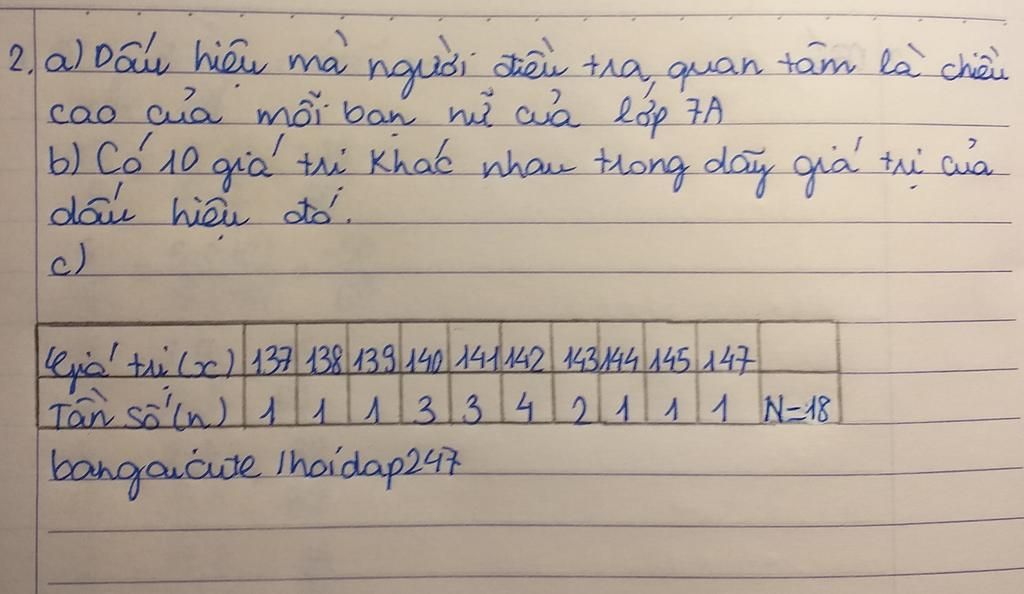 2. a) Dấu hiệu mà người điều tra quan tâm là chiều
cao của mỗi bạn nữ của lớp 7A
b) Có 10 giá trị khác nhau trong dãy giá trị của
dấu hiệu đó.
c)
Giá trị (x) 137 138 139 140 141 142 143 144 145 147
Tần số (n) 1 1 1 3 3 4 2 1 1 1 N=18
bangaicute / hoidap247